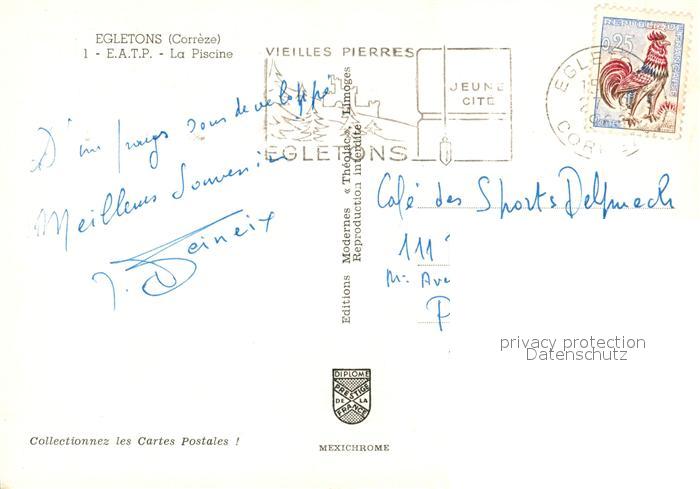 EGLETONS (Corrèze)
1 - E.A.T.P. - La Piscine
VIEILLES PIERRES
JEUNE
CITÉ
EGLETONS
REPUBLIQUE FRANÇAISE
0,25
D'un pays sous développé
Meilleurs Souvenirs
J.
Editions Modernes « Théojac » Limoges
Reproduction interdite
Café des Sports Delpuech
111
Ave
privacy protection
Datenschutz
DIPLOME
PRESTIGE
DE LA
FRANCE
Collectionnez les Cartes Postales !
MEXICHROME